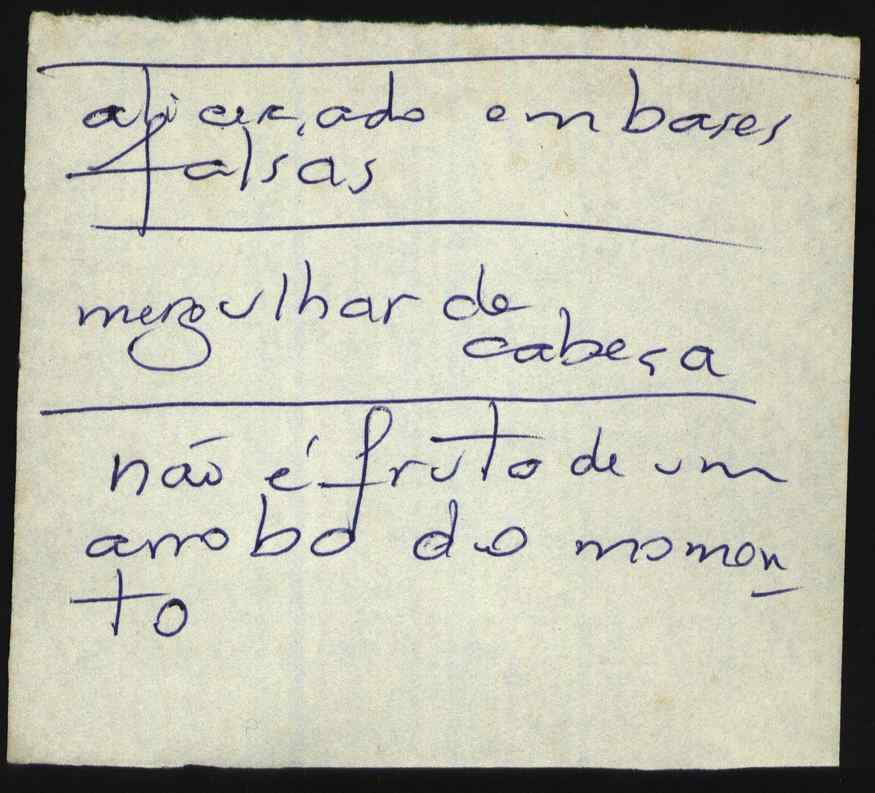 alicerçado em bases
falsas
mergulhar de
cabeça
não é fruto de um
arrobo do momen-
to